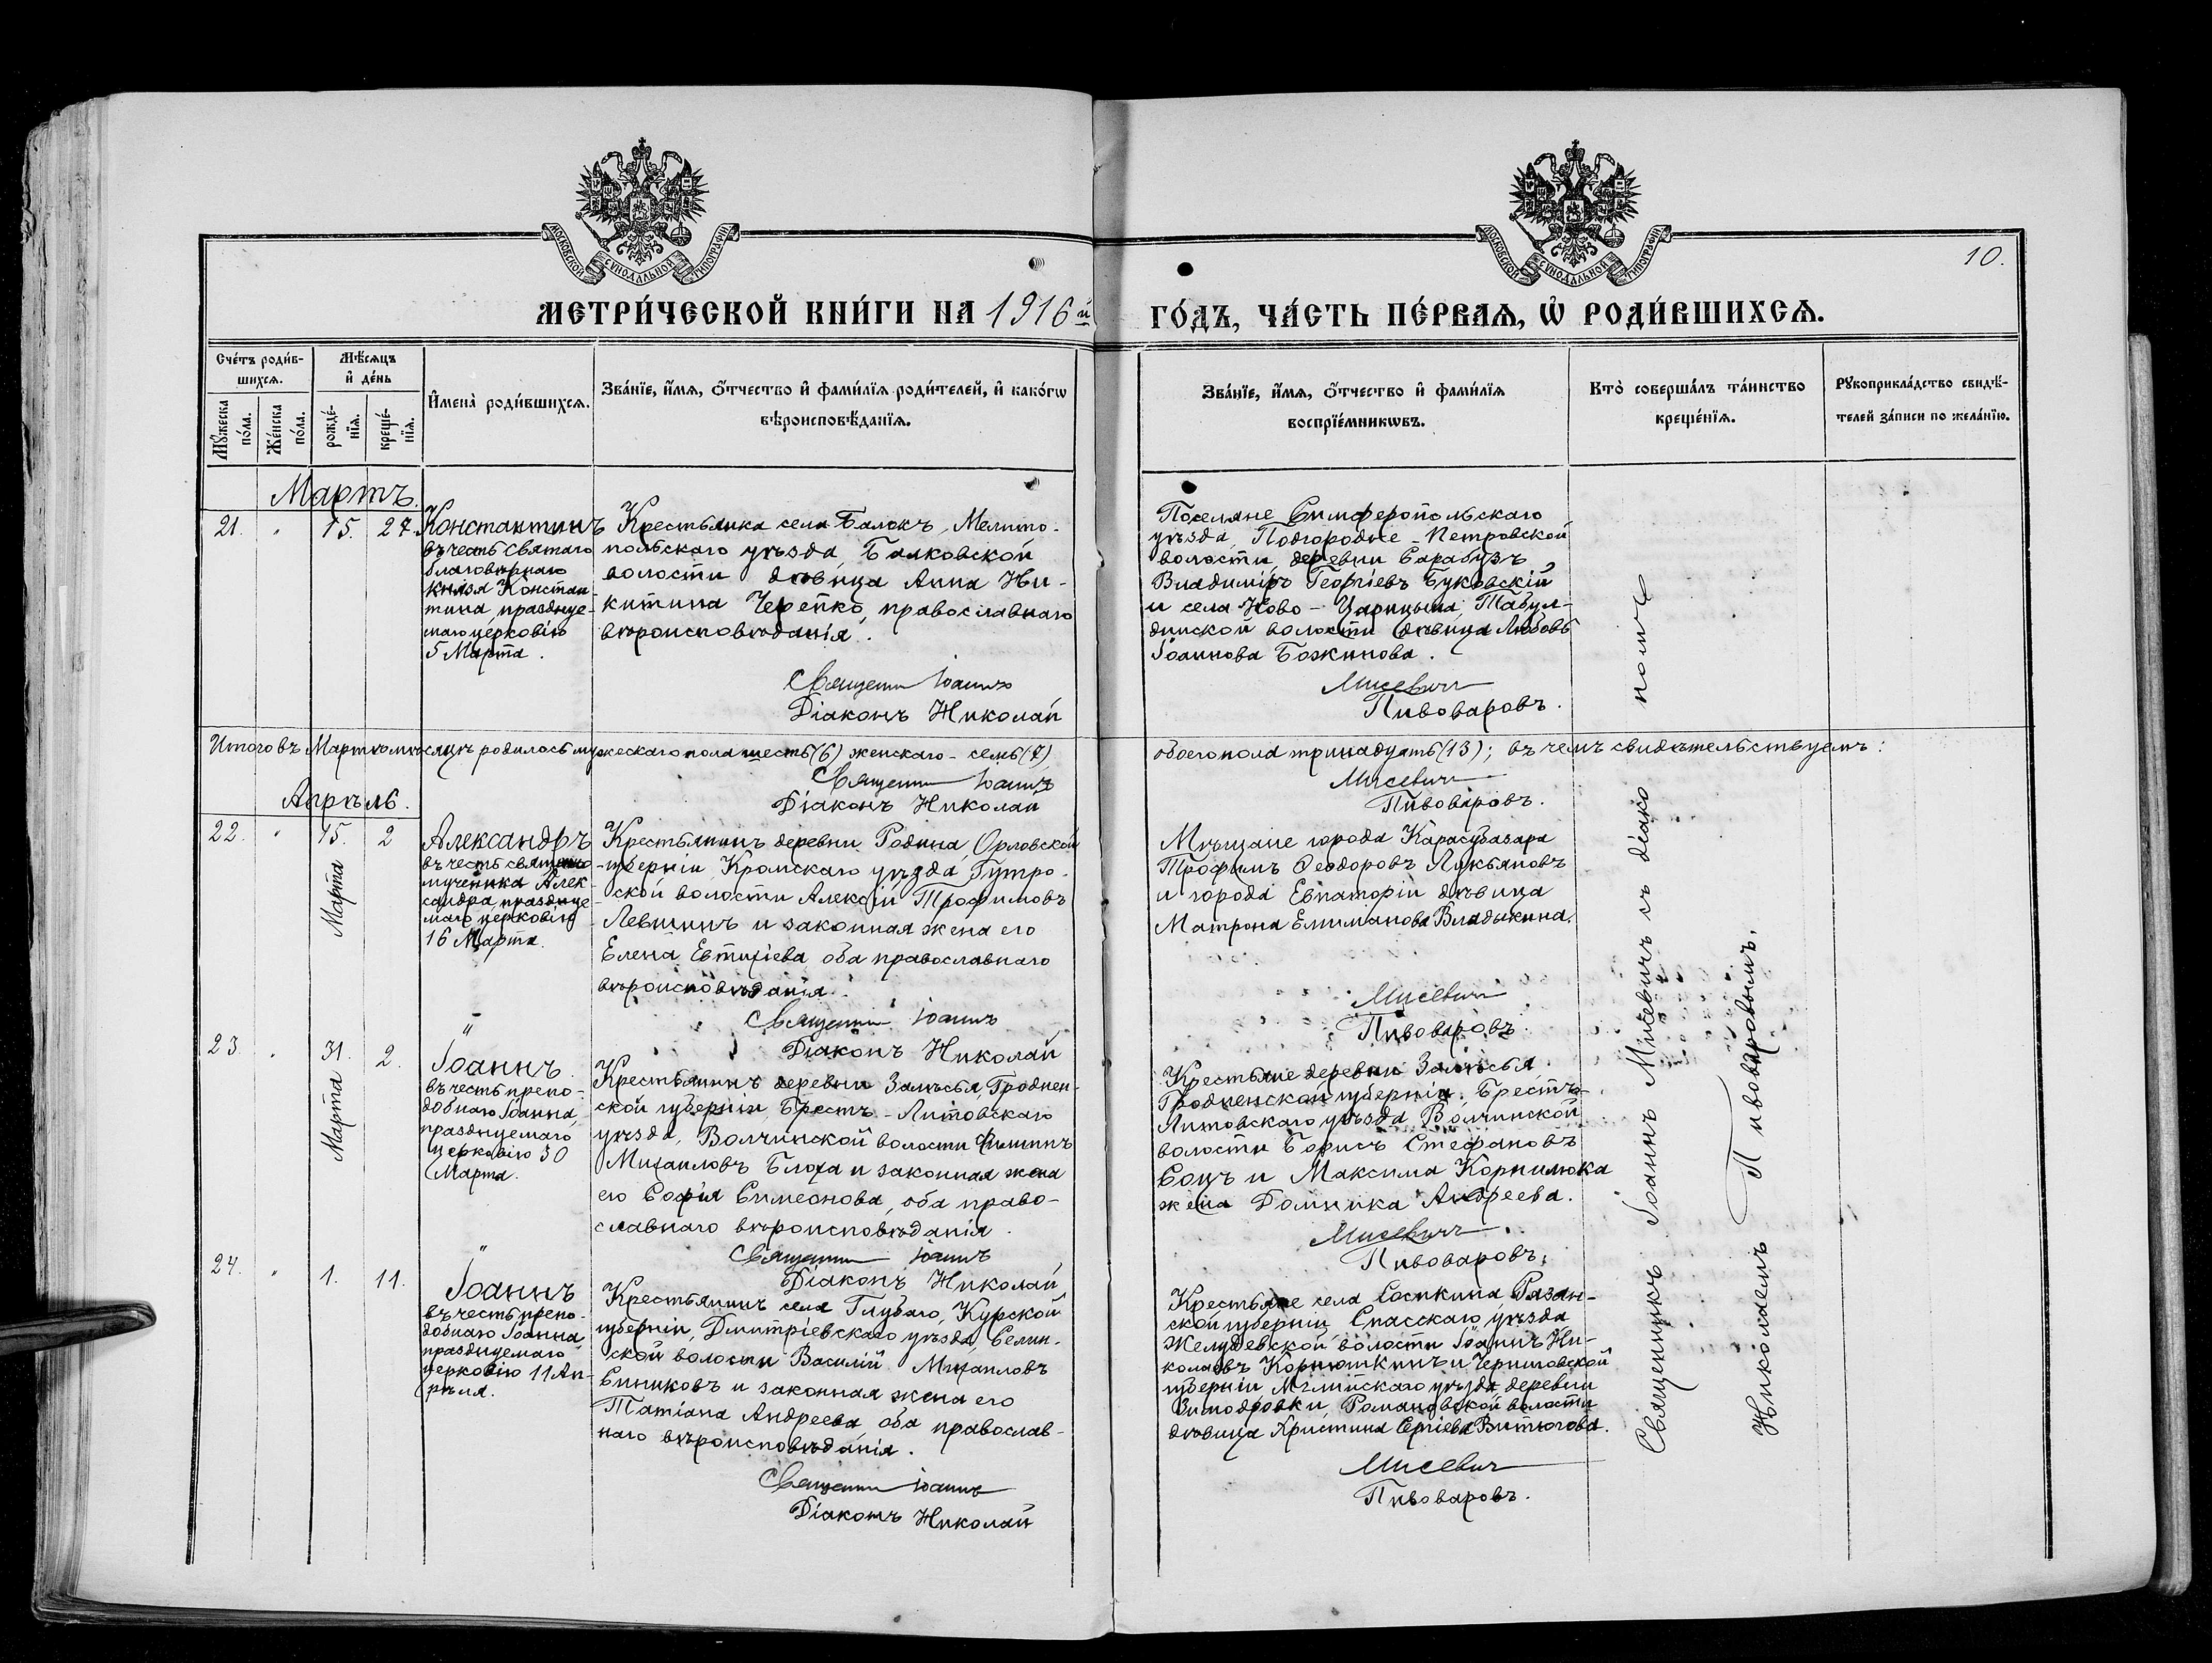 МОСКОВСКОЙ СѴНОДАЛЬНОЙ ТИПОГРАФІИ
МОСКОВСКОЙ СѴНОДАЛЬНОЙ ТИПОГРАФІИ
10.
МЕТРИ́ЧЕСКОЙ КНИ́ГИ НА 1916й ГО́ДЪ, ЧА́СТЬ ПЕ́РВАѦ, Ѡ҆ РОДИ́ВШИХСѦ.
Сче́тъ роди́в-
шихсѧ.
Мѣ́сѧцъ
и҆ де́нь
Мꙋ́жеска
по́ла.
Же́нска
по́ла.
рожде́-
нїѧ.
креще́-
нїѧ.
И҆мена̀ роди́вшихсѧ.
Зва́нїе, и҆́мѧ, ѻ҆́тчество и҆ фами́лїѧ роди́телей, и҆ како́гѡ
вѣроисповѣ́данїѧ.
Зва́нїе, и҆́мѧ, ѻ҆́тчество и҆ фами́лїѧ
воспрїе́мникѡвъ.
Кто̀ соверша́лъ та́инство
креще́нїѧ.
Рꙋкоприкла́дство свидѣ́-
телей за́писи по жела́нїю.
Мартъ.
21. " 15. 27.
Константинъ
въ честь святаго
благовѣрнаго
князя Констан-
тина, празднуе-
маго церковію
5 Марта.
Крестьянка села Балокъ, Мелито-
польскаго уѣзда, Балковской
волости дѣвица Анна Ни-
китина Черепко, православнаго
вѣроисповѣданія.
Священн Іоаннъ
Діаконъ Николай
Поселяне Симферопольскаго
уѣзда, Подгородне-Петровской
волости, деревни Сарабузъ
Владиміръ Георгіевъ Буковскій
и села Ново-Царицына, Табул-
динской волости дѣвица Любовь
Іоаннова Божинова.
Мисевич
Пивоваровъ.
Итого въ Мартѣ мѣсяцѣ родилось мужескаго пола шесть (6) женскаго - семь (7) обоего пола тринадцать (13); въ чемъ свидѣтельствуемъ:
Священн Іоаннъ Мисевич
Діаконъ Николай Пивоваровъ.
Апрѣль.
22. " 15. Марта 2
Александръ
въ честь священно
мученика Алек-
сандра, празднуе-
маго церковію
16 Марта.
Крестьянинъ деревни Родина, Орловской
губерніи, Кромскаго уѣзда, Гутро-
ской волости Алексій Трофимовъ
Левшинъ и законная жена его
Елена Евтихіева, оба православнаго
вѣроисповѣданія.
Священн Іоаннъ
Діаконъ Николай
Мѣщане города Карасубазара
Трофимъ Ѳеодоровъ Лукьяновъ
и города Евпаторіи дѣвица
Матрона Владыкина.
Мисевич
Пивоваровъ
23. " 31. Марта 2.
"
Іоаннъ
въ честь препо-
добнаго Іоанна,
празднуемаго
церковію 30
Марта.
Крестьянинъ деревни Залѣсья, Гроднен-
ской губерніи, Брестъ-Литовскаго
уѣзда, Волчинской волости Филиппъ
Михаиловъ Блоха и законная жена
его Софія Симеонова, оба право-
славнаго вѣроисповѣданія.
Священн Іоаннъ
Діаконъ Николай
Крестьяне деревни Залѣсья
Гродненской губерніи, Брестъ-
Литовскаго уѣзда, Волчинской
волости Борисъ Стефановъ
Соцъ и Максима Корнилюка
жена Домника Андреева.
Мисевичъ
Пивоваровъ.
24. " 1. 11.
"
Іоаннъ
въ честь препо-
добнаго Іоанна
празднуемаго
церковію 11 Ап-
рѣля.
Крестьянинъ села Глубаго, Курской
губерніи, Дмитріевскаго уѣзда, Селин-
ской волости Василій Михаиловъ
Синиковъ и законная жена его
Татіана Андреева, оба православ-
наго вѣроисповѣданія.
Священн Іоаннъ
Діаконъ Николай
Крестьяне села Сосыкина Рязан-
ской губерніи Спасскаго уѣзда
Желудевской волости Іоаннъ Ни-
колаевъ Корнюшкинъ и Черниговской
губерніи Мглинскаго уѣзда деревни
Романовской волости
дѣвица Христина Сергіева Витюгова.
Мисевич
Пивоваровъ.
Священникъ Іоаннъ Мисевичъ съ діако номъ
Николаемъ Пивоваровымъ.